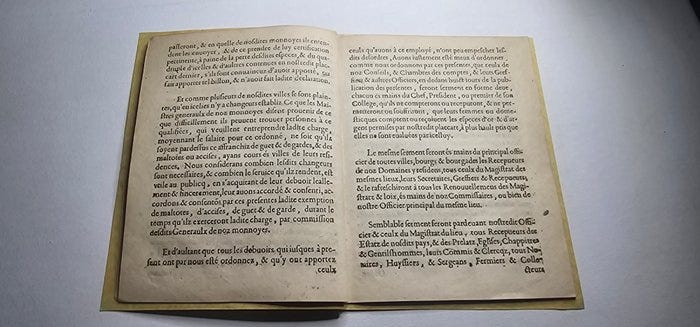 passeront, & en quelle de nosdites monnoyes ils enten-
dent les envoyer, & de ce premier de luy certification
pertinente, à paine de la perte desdites especes, & du qua-
druple d'icelles & d'autres contenues en nostredit plac-
cart dernier, s'ils sont convaincuz d'auoir apporté, ou
fait apporter tel billon, & n'auoir fait ladite declaration.
Et comme plusieurs de nosdites villes se sont plain-
tes, qu'en icelles n'y a changeurs establiz. Ce que les Mai-
stres generaulx de noz monnoyes disent prouenir de ce
que difficillement ils peuuent trouuer personnes à ce
qualifiées, qui veuillent entreprendre ladite charge,
moyennant le salaire pour ce ordonné, ne soit qu'ils
soyent pardessus ce affranchiz de guet & de gardes, & des
maltotes ou accises, ayans cours és villes de leurs resi-
dences. Nous considerans combien lesdits changeurs
sont necessaires, & combien le seruice qu'ilz rendent, est
vtile au publicq, en s'acquitant de leur debuoir leale-
ment & sincerement, leur auons accordé & consenti, ac-
cordons & consentós par ces presentes ladite exemption
de maltotes, d'accises, de guet & de garde, durant le
temps qu'ils exerceront ladite charge, par commission
desdits Generaulx de noz monnoyes.
Et d'autant que tous les debuoirs qui iusques à pre-
sent ont par nous esté ordonnez, & qu'y ont apportez
ceulx
ceulx qu'auons à ce employé, n'ont peu empescher les-
dits desordres, Auons iustement esté meuz d'ordonner
comme nous ordonnons par ces presentes, que ceulx de
noz Consaulx, & Chambres des comptes, & leurs Gref-
fiers, & autres Officiers, en dedans huict iours de la pu-
blication des presentes, seront serment en forme deuë,
chacun és mains du Chef, President, ou premier de son
College, qu'ils ne compteront ou receputeront, & ne per-
mettront ou souffriront, que leurs femmes ou dome-
sticques comptent ou reçoiuent les especes d'or & d'ar-
gent permises par nostredit placcart, à plus hault pris que
elles ne sont eualuées par icelluy.
Le mesme serment seront és mains du principal offi-
cier de toutes villes, bourgs & bourgades les Recepueurs
de noz Domaines y residens, tous ceulx du Magistrat des
mesmes lieux, leurs Secretaires, Greffiers & Recepueurs,
& le rafreschiront à tous les Renouuellemens des Magi-
strats & loix, és mains de noz Commissaires, ou bien de
nostre Officier principal du mesme lieu.
Semblable serment seront pardeuant nostredit Offi-
cier & ceulx du Magistrat du lieu, tous Recepueurs des
Estatz de nosdits pays, & des Prelatz, Eglises, Chappitres
& Gentilshommes, leurs Commis & Clercqz, tous No-
taires, Huyssiers, & Sergeans, Fermiers & Colle-
cteurs